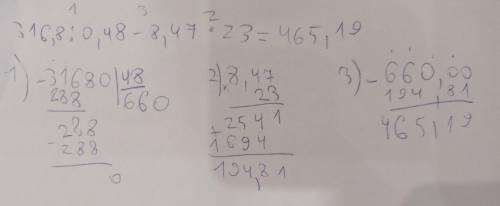 316,8 : 0,48 - 8,47 · 23 = 465,19
1 3 2
1) -31680 |48
288 660
288
-288
0
2) 8,47
23
2541
1694
194,81
3) -660,00
194,81
465,19